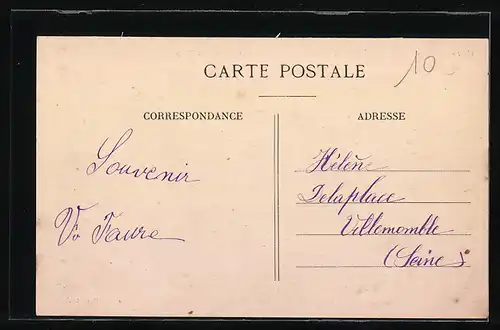 10
CARTE POSTALE
CORRESPONDANCE
Souvenir
V. Faure
ADRESSE
Hélène
Delaplace
Villemomble
(Seine)